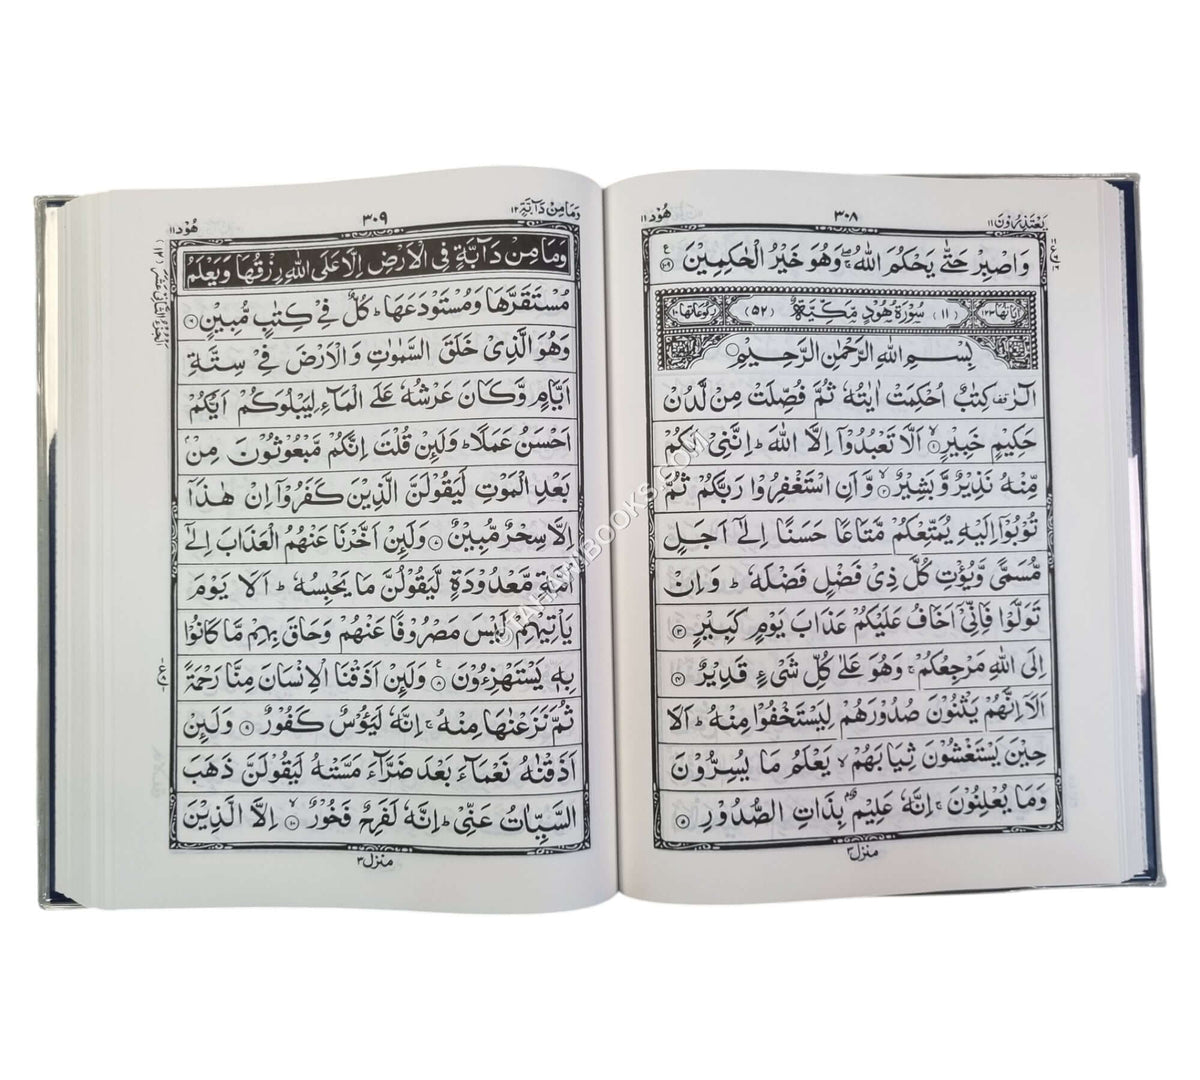 يَعْتَذِرُوْنَ ١١
٣٠٨
هُوْد ١١
وَاصْبِرْ حَتّٰى يَحْكُمَ اللّٰهُ ۖۚ وَهُوَ خَيْرُ الْحٰكِمِيْنَ ١٠٩
اٰيَاتُهَا ١٢٣ (١١) سُوْرَةُ هُوْدٍ مَكِّيَّةٌ (٥٢) رُكُوْعَاتُهَا ١٠
بِسْمِ اللّٰهِ الرَّحْمٰنِ الرَّحِيْمِ
الٓرٰ ۫ كِتٰبٌ اُحْكِمَتْ اٰيٰتُهٗ ثُمَّ فُصِّلَتْ مِنْ لَّدُنْ
حَكِيْمٍ خَبِيْرٍ ١ اَلَّا تَعْبُدُوْۤا اِلَّا اللّٰهَ ؕ اِنَّنِيْ لَكُمْ
مِّنْهُ نَذِيْرٌ وَّبَشِيْرٌ ٢ وَّاَنِ اسْتَغْفِرُوْا رَبَّكُمْ ثُمَّ
تُوْبُوْۤا اِلَيْهِ يُمَتِّعْكُمْ مَّتَاعًا حَسَنًا اِلٰۤى اَجَلٍ
مُّسَمًّى وَّيُؤْتِ كُلَّ ذِيْ فَضْلٍ فَضْلَهٗ ؕ وَاِنْ
تَوَلَّوْا فَاِنِّيْۤ اَخَافُ عَلَيْكُمْ عَذَابَ يَوْمٍ كَبِيْرٍ ٣
اِلَى اللّٰهِ مَرْجِعُكُمْ ۚ وَهُوَ عَلٰى كُلِّ شَيْءٍ قَدِيْرٌ ٤
اَلَاۤ اِنَّهُمْ يَثْنُوْنَ صُدُوْرَهُمْ لِيَسْتَخْفُوْا مِنْهُ ؕ اَلَا
حِيْنَ يَسْتَغْشُوْنَ ثِيَابَهُمْ ۙ يَعْلَمُ مَا يُسِرُّوْنَ
وَمَا يُعْلِنُوْنَ ۚ اِنَّهٗ عَلِيْمٌۢ بِذَاتِ الصُّدُوْرِ ٥
منزل ٣
وَمَا مِنْ دَآبَّةٍ ١٢
٣٠٩
هُوْد ١١
وَمَا مِنْ دَآبَّةٍ فِي الْاَرْضِ اِلَّا عَلَى اللّٰهِ رِزْقُهَا وَيَعْلَمُ
مُسْتَقَرَّهَا وَمُسْتَوْدَعَهَا ؕ كُلٌّ فِيْ كِتٰبٍ مُّبِيْنٍ ٦
وَهُوَ الَّذِيْ خَلَقَ السَّمٰوٰتِ وَالْاَرْضَ فِيْ سِتَّةِ
اَيَّامٍ وَّكَانَ عَرْشُهٗ عَلَى الْمَآءِ لِيَبْلُوَكُمْ اَيُّكُمْ
اَحْسَنُ عَمَلًا ؕ وَلَئِنْ قُلْتَ اِنَّكُمْ مَّبْعُوْثُوْنَ مِنْۢ
بَعْدِ الْمَوْتِ لَيَقُوْلَنَّ الَّذِيْنَ كَفَرُوْۤا اِنْ هٰذَاۤ
اِلَّا سِحْرٌ مُّبِيْنٌ ٧ وَلَئِنْ اَخَّرْنَا عَنْهُمُ الْعَذَابَ اِلٰۤى
اُمَّةٍ مَّعْدُوْدَةٍ لَّيَقُوْلُنَّ مَا يَحْبِسُهٗ ؕ اَلَا يَوْمَ
يَاْتِيْهِمْ لَيْسَ مَصْرُوْفًا عَنْهُمْ وَحَاقَ بِهِمْ مَّا كَانُوْا
بِهٖ يَسْتَهْزِءُوْنَ ٨ وَلَئِنْ اَذَقْنَا الْاِنْسَانَ مِنَّا رَحْمَةً
ثُمَّ نَزَعْنٰهَا مِنْهُ ۚ اِنَّهٗ لَيَـُٔوْسٌ كَفُوْرٌ ٩ وَلَئِنْ
اَذَقْنٰهُ نَعْمَآءَ بَعْدَ ضَرَّآءَ مَسَّتْهُ لَيَقُوْلَنَّ ذَهَبَ
السَّيِّاٰتُ عَنِّيْ ؕ اِنَّهٗ لَفَرِحٌ فَخُوْرٌ ١٠ اِلَّا الَّذِيْنَ
منزل ٣